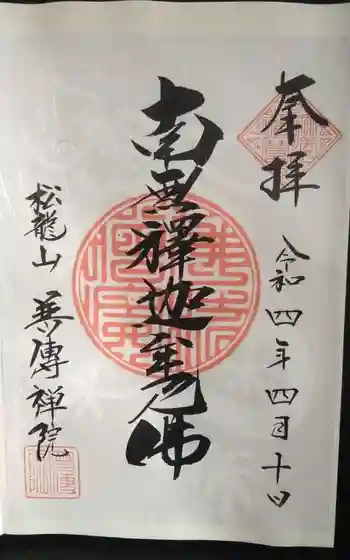 奉拝
令和四年四月十日
南無釋迦牟尼佛
松龍山
善傳禅院